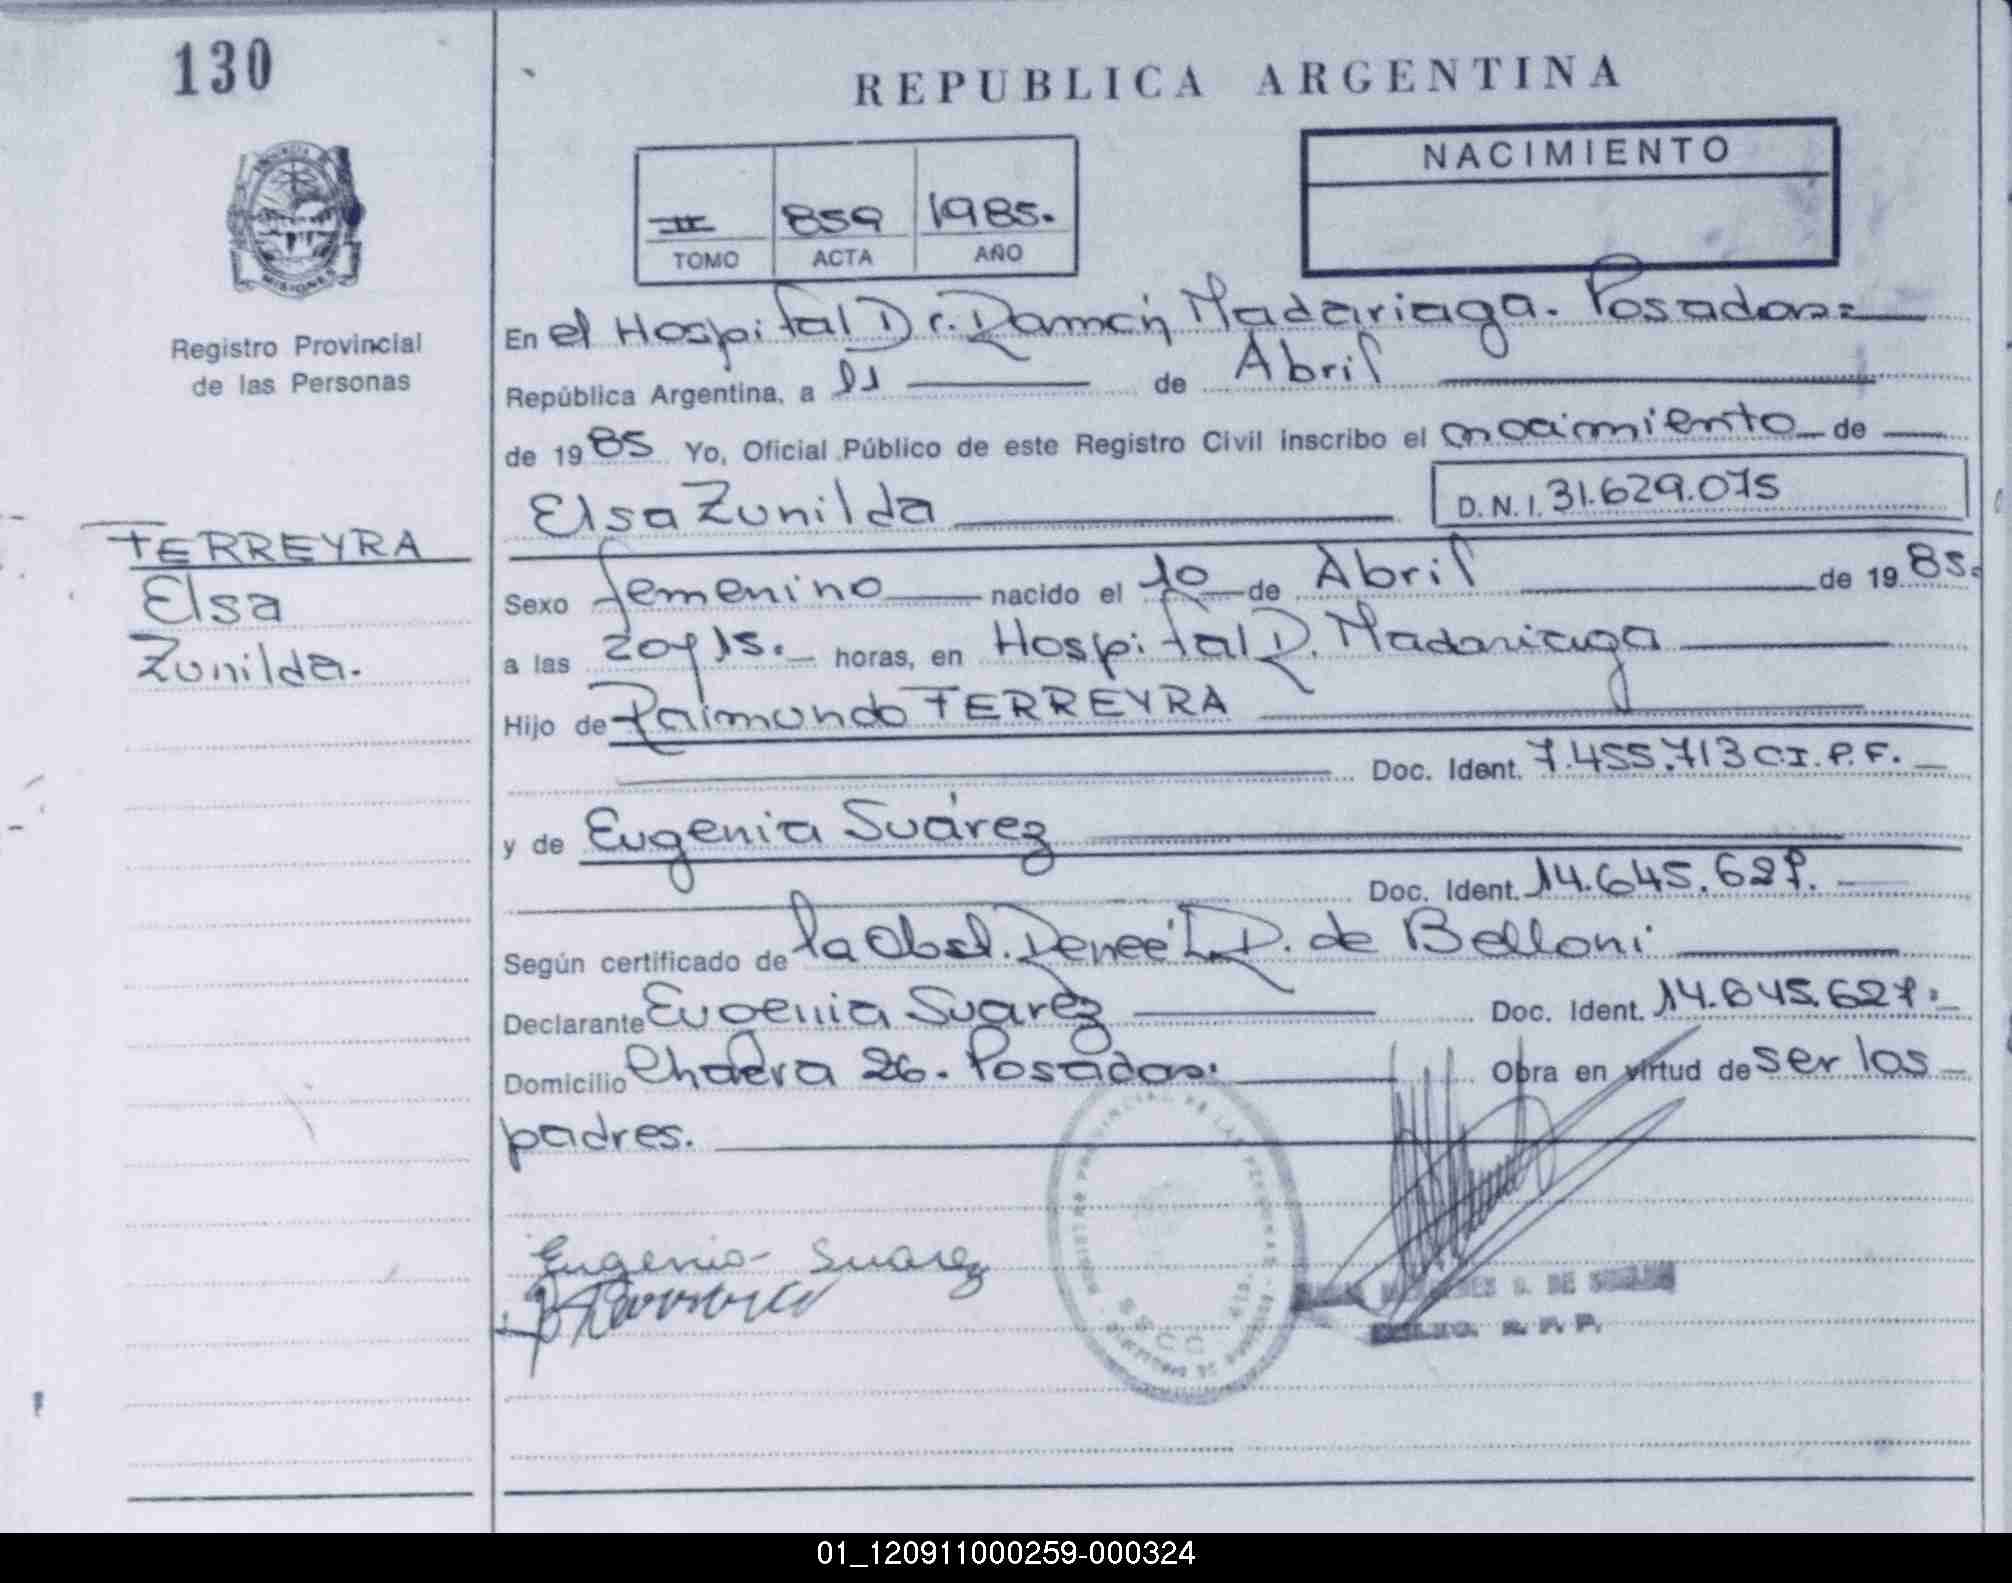 130
REPUBLICA ARGENTINA
NACIMIENTO
II 859 1985.
TOMO ACTA AÑO
MISIONES
Registro Provincial
de las Personas
FERREYRA
Elsa
Zunilda.
En el Hospital Dr. Ramón Madariaga. Posadas=
República Argentina, a 11 de Abril
de 1985 Yo, Oficial Público de este Registro Civil inscribo el nacimiento de
Elsa Zunilda D.N.I. 31.629.075
Sexo femenino nacido el 10 de Abril de 1985.
a las 20y15. horas, en Hospital R. Madariaga
Hijo de Raimundo FERREYRA
Doc. Ident. 7.455.713 C.I.P.F.
y de Eugenia Suárez
Doc. Ident. 14.645.627.
Según certificado de la Obst. Reneé L R. de Belloni
Declarante Eugenia Suarez Doc. Ident. 14.645.627.
Domicilio Chacra 26. Posadas. Obra en virtud de ser los
padres.
Eugenia Suarez
REGISTRO PROVINCIAL DE LAS PERSONAS
S. DE
R. P. P.
01_120911000259-000324